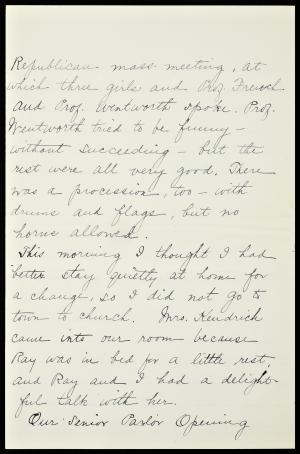 Republican mass meeting, at
which three girls and Prof. French
and Prof. Wentworth spoke. Prof.
Wentworth tried to be funny –
without succeeding – but the
rest were all very good. There
was a procession, too – with
drums and flags, but no
horns allowed.
This morning I thought I had
better stay quietly at home for
a change, so I did not go to
town to church. Mrs. Kendrick
came into our room because
Ray was in bed for a little rest,
and Ray and I had a delight-
ful talk with her.
Our Senior Parlor Opening